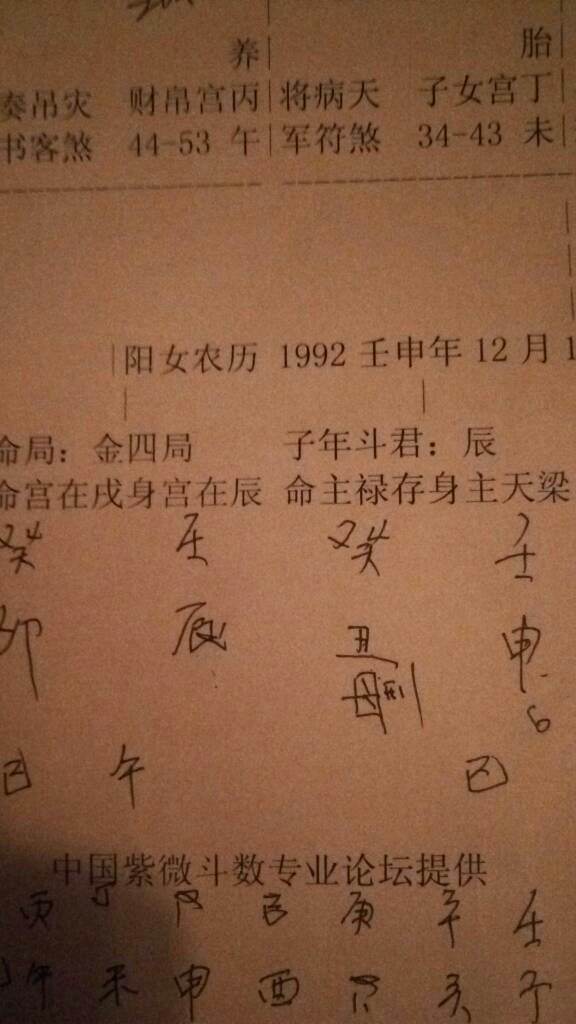 养 胎
奏吊灾 财帛宫丙 将病天 子女宫丁
书客煞 44-53 午 军符煞 34-43 未
阳女农历 1992 壬申年 12 月 1
命局：金四局 子年斗君：辰
命宫在戌身宫在辰 命主禄存身主天梁
癸 壬 癸 壬
卯 辰 丑 申
刑 6
巳 午 巳
中国紫微斗数专业论坛提供
丙 丁 戊 己 庚 辛 壬
午 未 申 酉 戌 亥 子